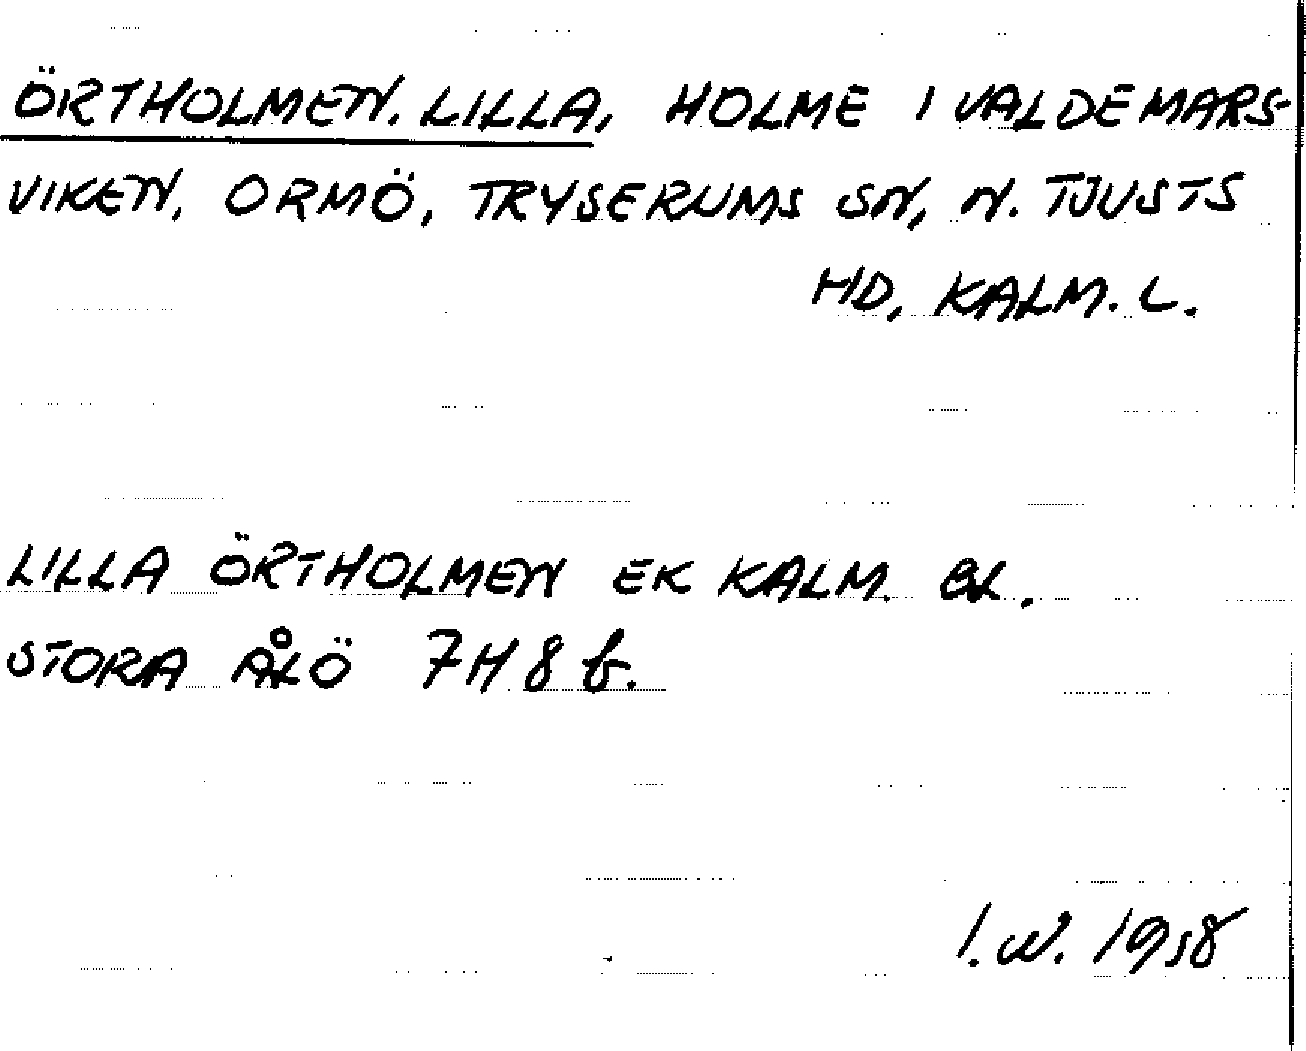 ÖRTHOLMEN. LILLA, HOLME I VALDEMARS-
VIKEN, ORMÖ, TRYSERUMS SN, N. TJUSTS
HD, KALM. L.
LILLA ÖRTHOLMEN EK KALM.
STORA ÅLÖ 7H 8 b.
I. W. 1958